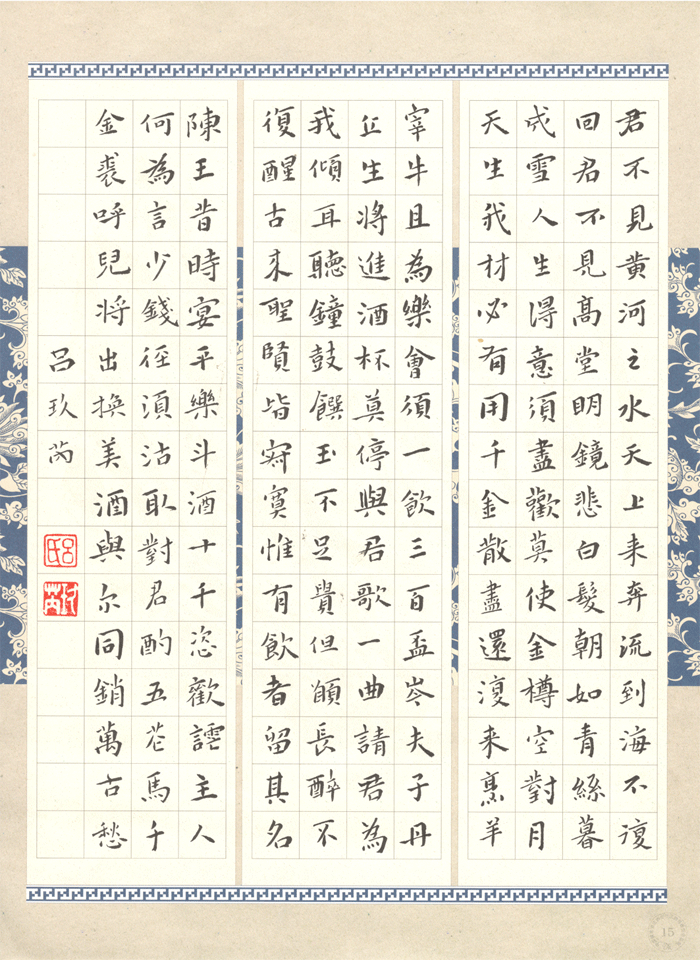 君不見黄河之水天上来奔流到海不復
回君不見高堂明鏡悲白髮朝如青絲暮
成雪人生得意須盡歡莫使金樽空對月
天生我材必有用千金散盡還復来烹羊
宰牛且為樂會須一飲三百盃岑夫子丹
丘生將進酒杯莫停與君歌一曲請君為
我傾耳聽鐘鼓饌玉不足貴但願長醉不
復醒古来聖賢皆寂寞惟有飲者留其名
陳王昔時宴平樂斗酒十千恣歡謔主人
何為言少錢徑須沽取對君酌五花馬千
金裘呼兒将出換美酒與尔同銷萬古愁
吕玖芮
15